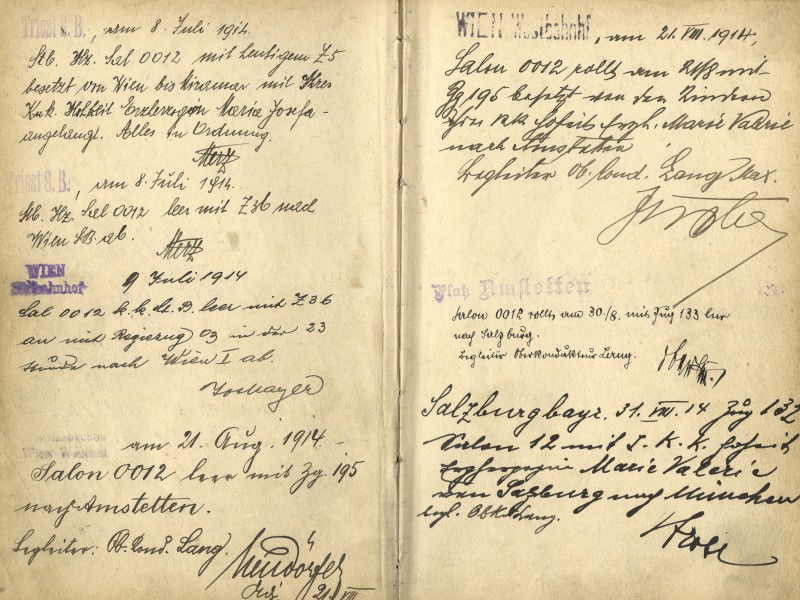 Triest S. B., am 8. Juli 1914.
Stb. Hz. Sal 0012 mit heutigem Z5
besetzt von Wien bis Miramar mit Ihrer
K.u.k. Hoheit Erzherzogin Maria Josefa
angelangt. Alles in Ordnung.
Merz
Triest S. B., am 8. Juli 1914.
Stb. Hz. Sal 0012 leer mit Z36 nach
Wien S.B. ab.
Merz
WIEN
Südbahnhof 9 Juli 1914
Sal 0012 k.k. St. B. leer mit Z36
an mit Regiezug 03 in der 23
Stunde nach Wien I ab.
am 21. Aug. 1914.
Salon 0012 leer mit Zg. 195
nach Amstetten.
Begleiter: Ob. Kond. Lang.
21. VIII
WIEN Westbahnhf, am 21. VIII. 1914,
Salon 0012 rollt am 21/8 mit
Zg 195 besetzt von den Kindern
Ihrer kk Hoheit Erzh. Marie Valerie
nach Amstetten
Begleiter Ob. Cond. Lang Max.
Platz Amstetten
Salon 0012 rollt am 30./8. mit Zug 133 leer
nach Salzburg.
Begleiter Oberkondukteur Lang.
Salzburg bayr. 31. VIII. 14 Zug 132
Salon 12 mit I. K. K. Hoheit
Erzherzogin Marie Valerie
von Salzburg nach München
begl. ObK. Lang.